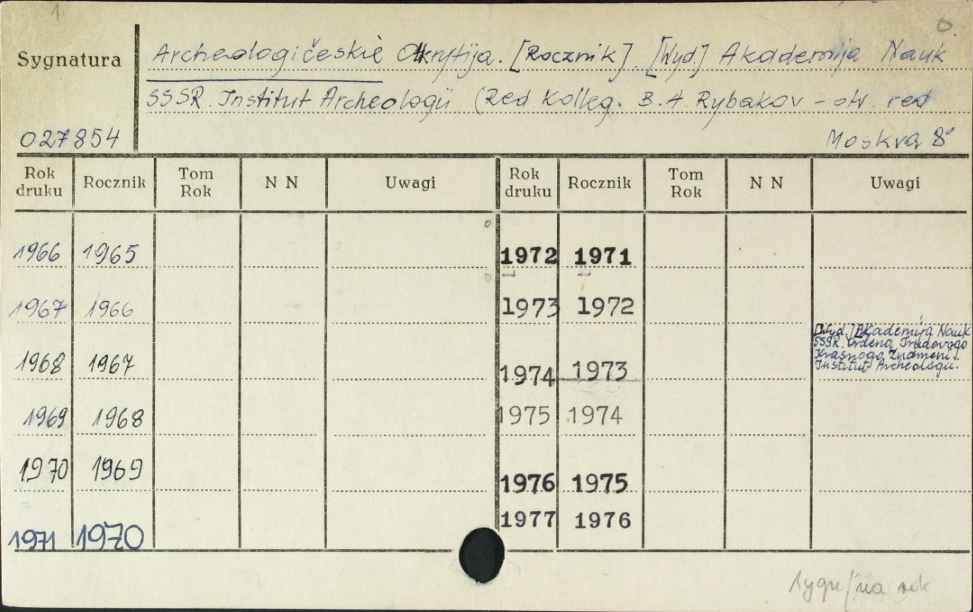 1
Sygnatura
Archeologičeskiè Otkrytija. [Rocznik]. [Wyd.] Akademija Nauk
SSSR. Institut Archeologii (Red Kolleg. B. A Rybakov – otv. red
027854
Moskva 8°
Rok druku Rocznik Tom Rok N N Uwagi Rok druku Rocznik Tom Rok N N Uwagi
1966 1965 1972 1971
1967 1966 1973 1972
[Wyd.] Akademija Nauk
SSSR. Ordena Trudovogo
Krasnogo Znameni
Institut Archeologii.
1968 1967 1974 1973
1969 1968 1975 1974
1970 1969 1976 1975
1971 1970 1977 1976
sygn/na rok